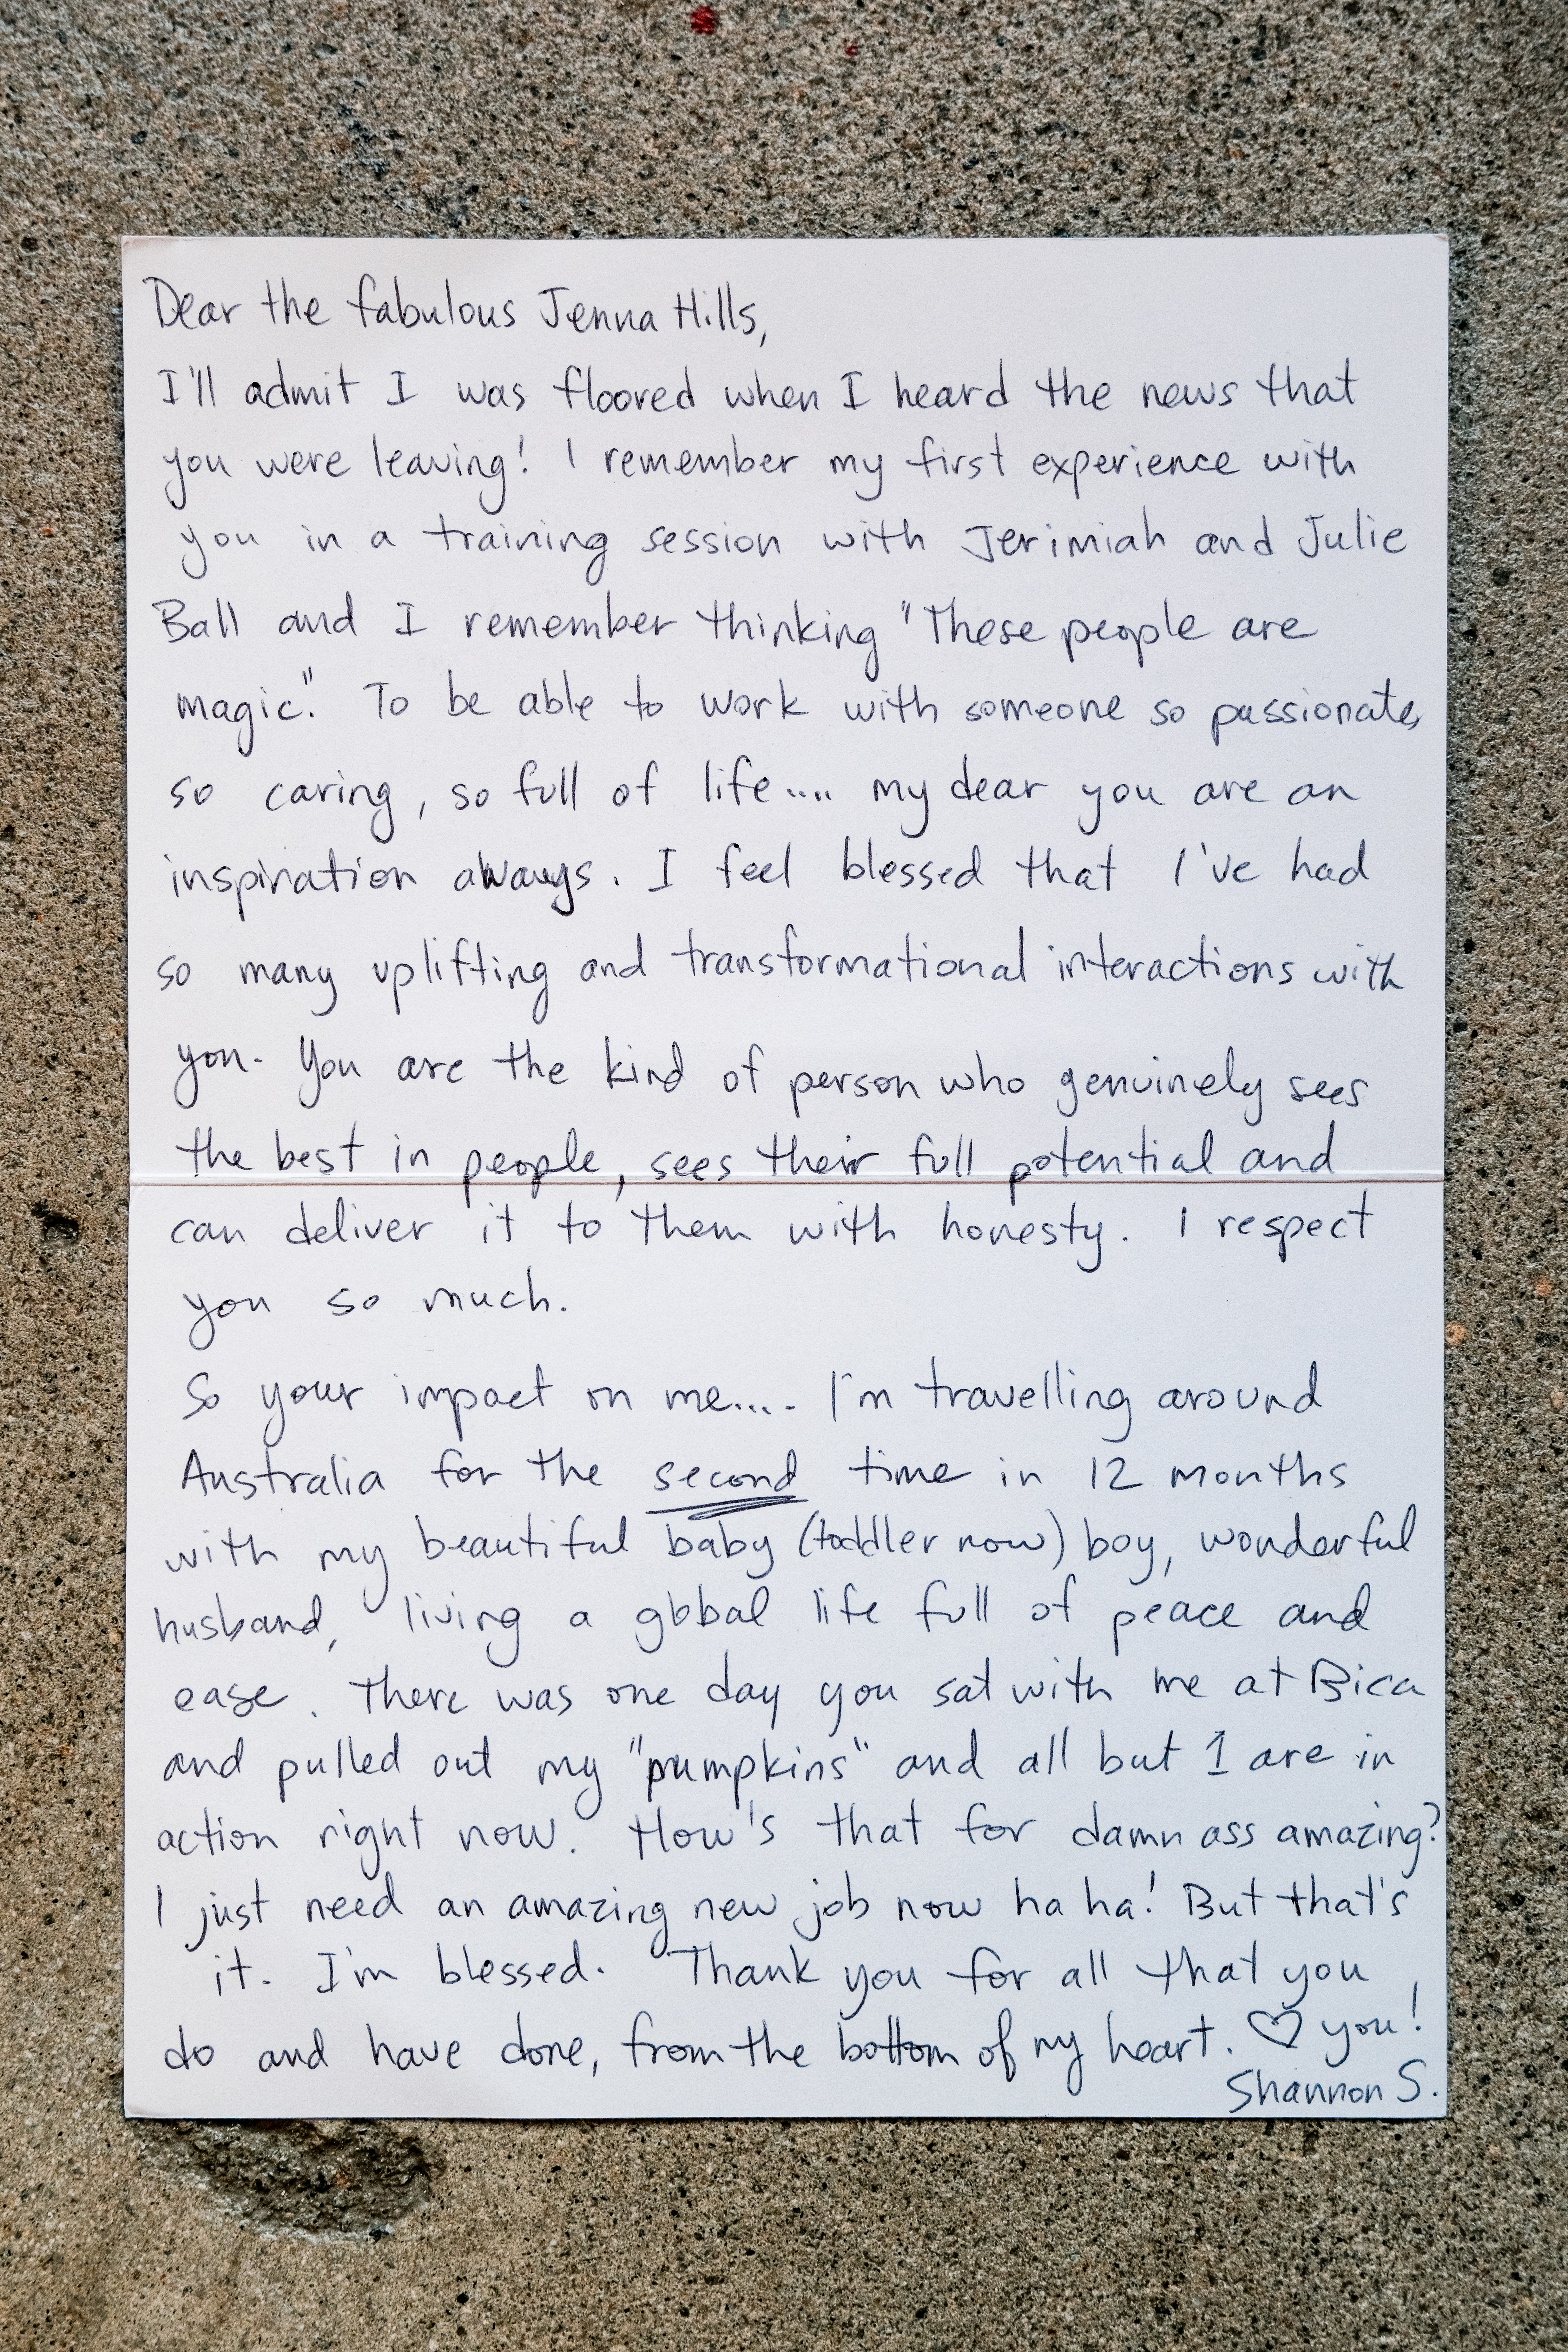 Dear the fabulous Jenna Hills,
I'll admit I was floored when I heard the news that
you were leaving! I remember my first experience with
you in a training session with Jerimiah and Julie
Ball and I remember thinking "These people are
magic". To be able to work with someone so passionate,
so caring, so full of life.... my dear you are an
inspiration always. I feel blessed that I've had
so many uplifting and transformational interactions with
you. You are the kind of person who genuinely sees
the best in people, sees their full potential and
can deliver it to them with honesty. I respect
you so much.
So your impact on me.... I'm travelling around
Australia for the second time in 12 months
with my beautiful baby (toddler now) boy, wonderful
husband, living a global life full of peace and
ease. There was one day you sat with me at Bica
and pulled out my "pumpkins" and all but 1 are in
action right now. How's that for damn ass amazing?
I just need an amazing new job now ha ha! But that's
it. I'm blessed. Thank you for all that you
do and have done, from the bottom of my heart. ♡ you!
Shannon S.